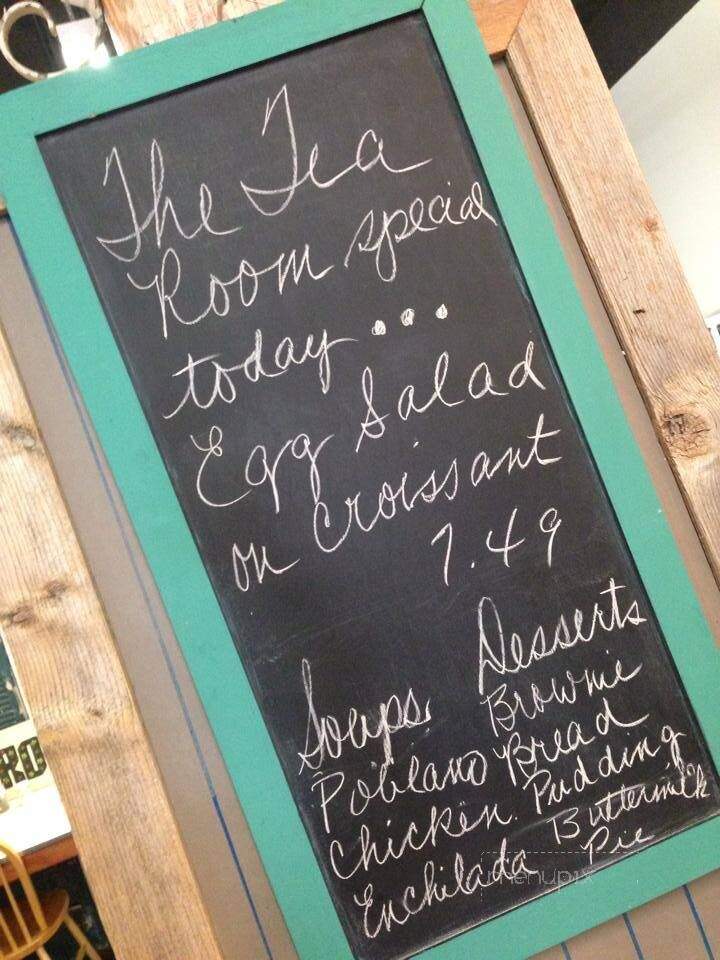 The Tea
Room special
today...
Egg Salad
on croissant
7.49
Soups
Poblano
Chicken
Enchilada
Desserts
Brownie
Bread
Pudding
Buttermilk
Pie
menupix
RO